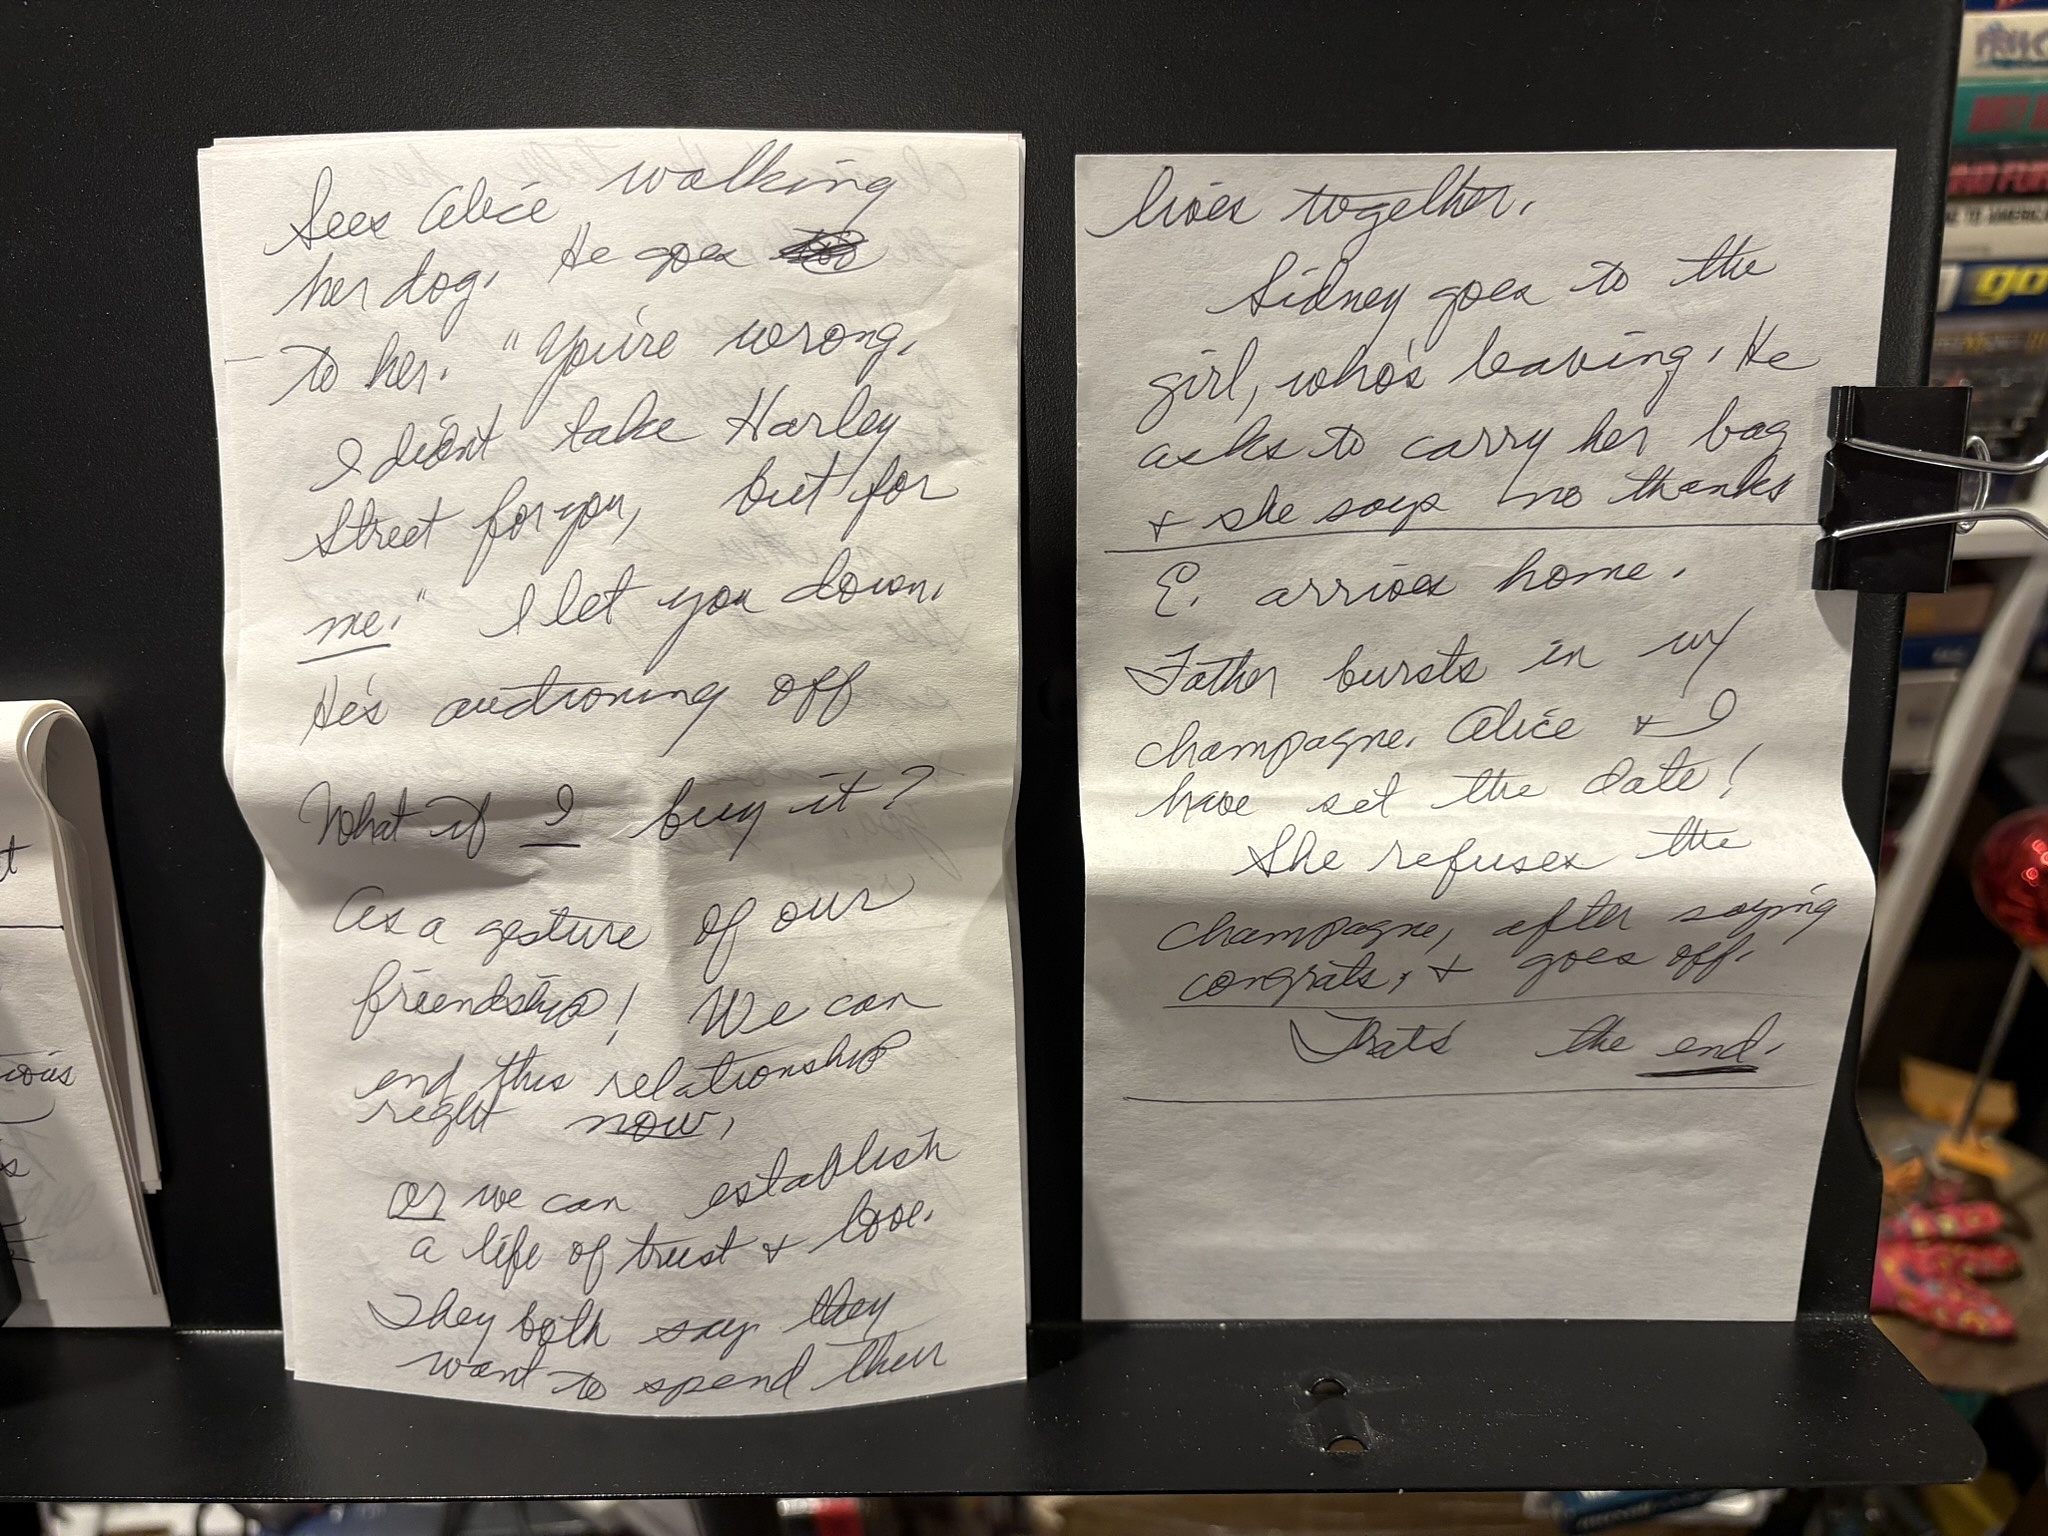 Sees Alice walking
her dog. He goes
to her. "You're wrong.
I didn't take Harley
Street for you, but for
me." I let you down.
He's auctioning off
What if I buy it?
As a gesture of our
friendship! We can
end this relationship
right now,
or we can establish
a life of trust + love.
They both say they
want to spend their
lives together.
Sidney goes to the
girl, who's leaving. He
asks to carry her bag
+ she says no thanks
E. arrives home.
Father bursts in w/
champagne. Alice + I
have set the date!
She refuses the
champagne, after saying
congrats, + goes off.
That's the end.